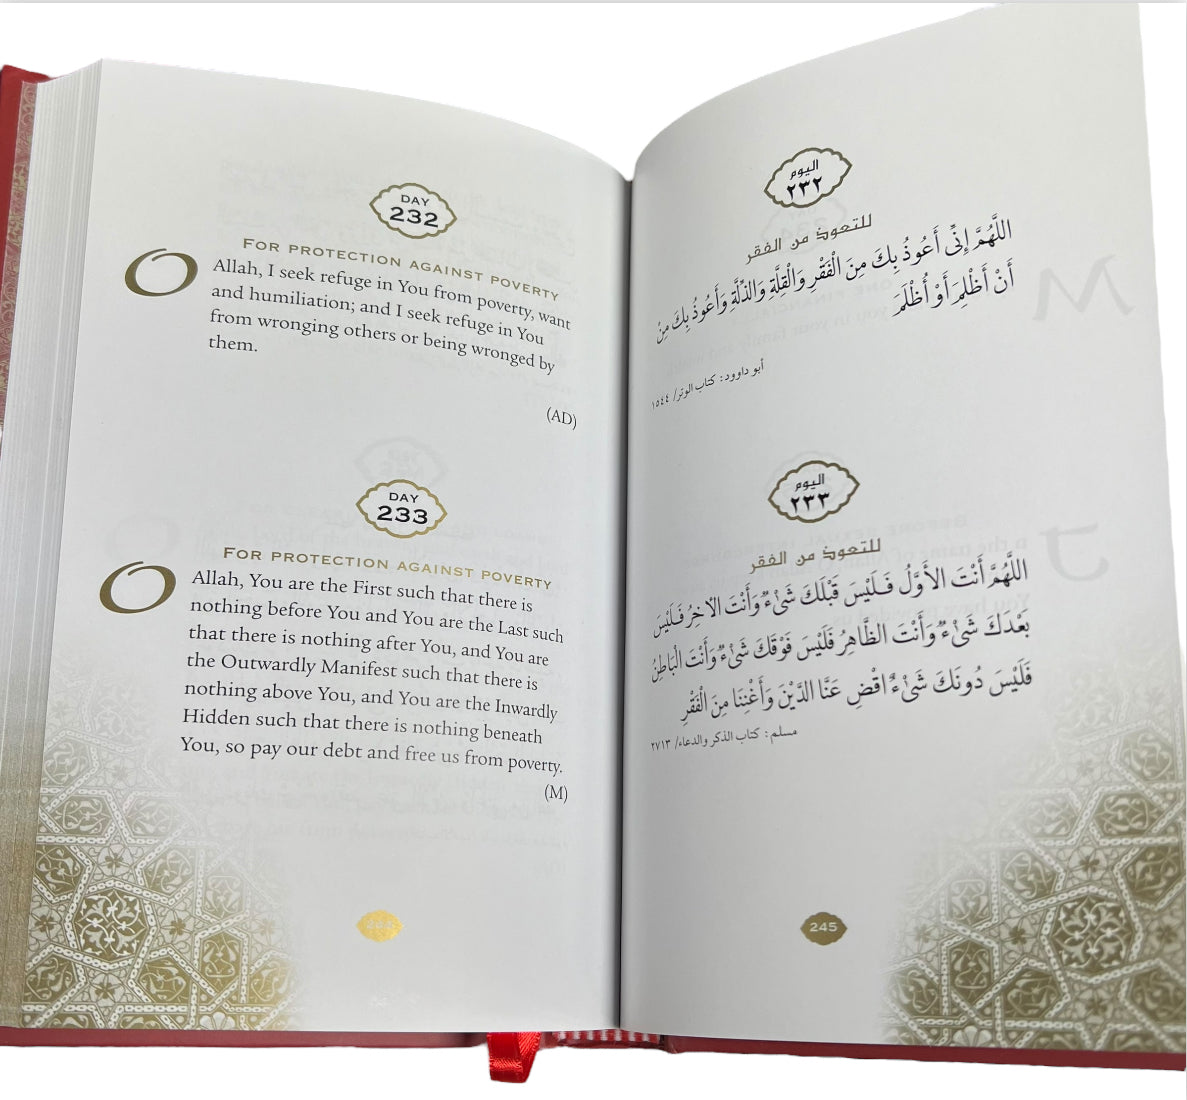 DAY
232
FOR PROTECTION AGAINST POVERTY
O Allah, I seek refuge in You from poverty, want
and humiliation; and I seek refuge in You
from wronging others or being wronged by
them.
(AD)
DAY
233
FOR PROTECTION AGAINST POVERTY
O Allah, You are the First such that there is
nothing before You and You are the Last such
that there is nothing after You, and You are
the Outwardly Manifest such that there is
nothing above You, and You are the Inwardly
Hidden such that there is nothing beneath
You, so pay our debt and free us from poverty.
(M)
اليوم
٢٣٢
للتعوذ من الفقر
اللَّهُمَّ إِنِّي أَعُوذُ بِكَ مِنَ الْفَقْرِ وَالْقِلَّةِ وَالذِّلَّةِ وَأَعُوذُ بِكَ مِنْ
أَنْ أَظْلِمَ أَوْ أُظْلَمَ
أبو داوود: كتاب الوتر/ ١٥٤٤
اليوم
٢٣٣
للتعوذ من الفقر
اللَّهُمَّ أَنْتَ الأَوَّلُ فَلَيْسَ قَبْلَكَ شَيْءٌ وَأَنْتَ الْآخِرُ فَلَيْسَ
بَعْدَكَ شَيْءٌ وَأَنْتَ الظَّاهِرُ فَلَيْسَ فَوْقَكَ شَيْءٌ وَأَنْتَ الْبَاطِنُ
فَلَيْسَ دُونَكَ شَيْءٌ اقْضِ عَنَّا الدَّيْنَ وَأَغْنِنَا مِنَ الْفَقْرِ
مسلم: كتاب الذكر والدعاء/ ٢٧١٣
245